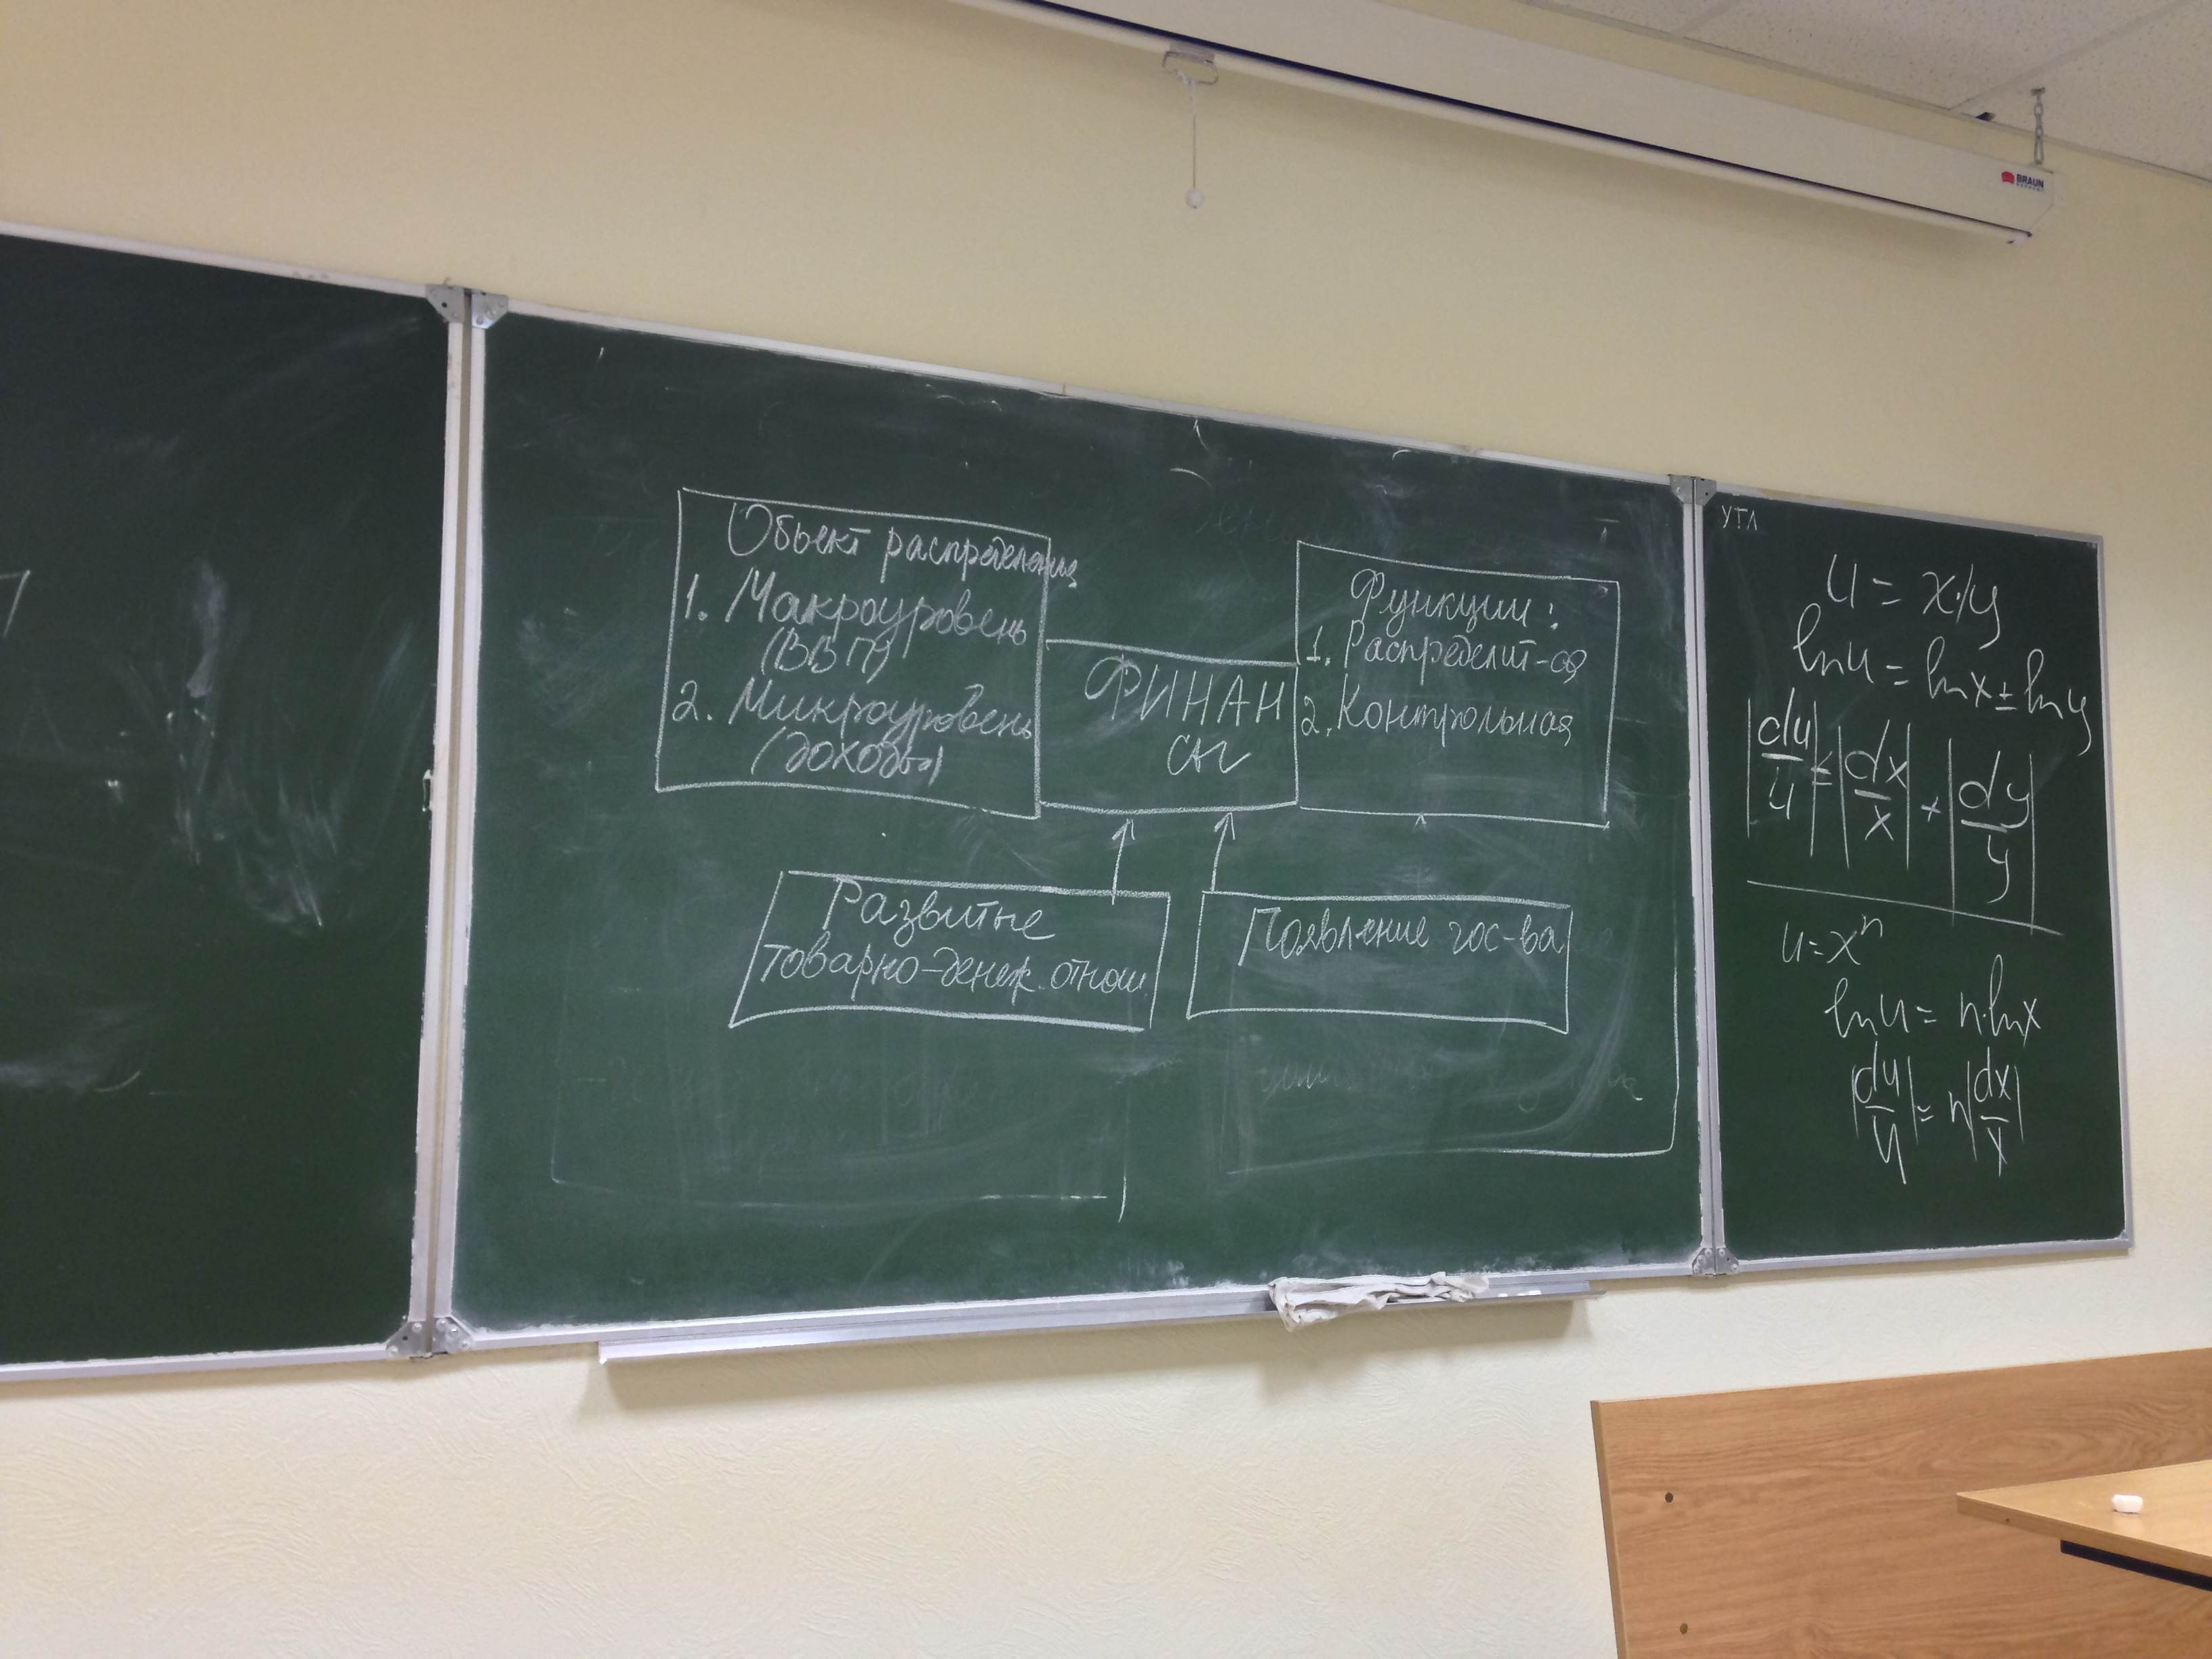 BRAUN
Объект распределения
1. Макроуровень
(ВВП)
2. Микроуровень
(доходы)
ФИНАН
СЫ
Функции:
1. Распределит-ая
2. Контрольная
Развитие
товарно-денеж. отнош.
Появление гос-ва
УТЛ
u = x·/y
ln u = ln x ± ln y
|du/u| = |dx/x| + |dy/y|
u = xⁿ
ln u = n·ln x
|du/u| = n|dx/x|